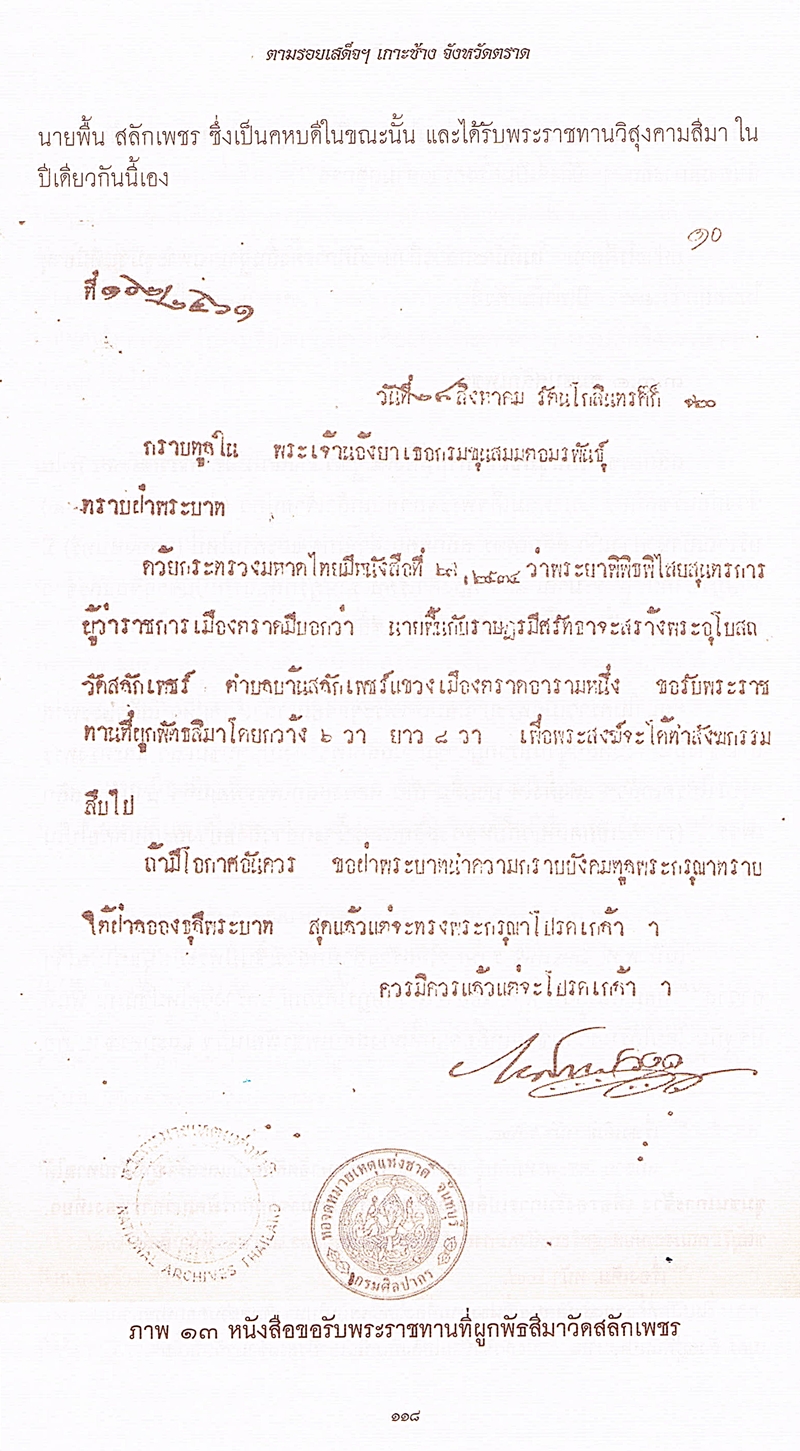 ตามรอยเสด็จฯ เกาะช้าง จังหวัดตราด
นายพื้น สลักเพชร ซึ่งเป็นคหบดีในขณะนั้น และได้รับพระราชทานวิสุงคามสีมา ใน
ปีเดียวกันนี้เอง
๑๐
ที่
วันที่ ๒๘ สิงหาคม รัตนโกสินทรศักราช ๑๒๐
กราบทูลใน พระเจ้าน้องยาเธอกรมขุนสมมตอมรพันธุ์
ทราบฝ่าพระบาท
ด้วยกระทรวงมหาดไทยมีหนังสือที่ ว่าพระยาพิพิธพิไสยสุนทรการ
ผู้ว่าราชการเมืองตราดมีบอกว่า นายพื้นกับราษฎรมีศรัทธาจะสร้างพระอุโบสถ
วัดสลักเพชร์ ตำบลบ้านสลักเพชร์แขวงเมืองตราดอารามหนึ่ง ขอรับพระราช
ทานที่ผูกพัทธสิมาโดยกว้าง ๖ วา ยาว ๘ วา เพื่อพระสงฆ์จะได้ทำสังฆกรรม
สืบไป
ถ้ามีโอกาศอันควร ขอฝ่าพระบาทนำความกราบบังคมทูลพระกรุณาทราบ
ใต้ฝ่าลอองธุลีพระบาท สุดแล้วแต่จะทรงพระกรุณาโปรดเกล้า ฯ
ควรมิควรแล้วแต่จะโปรดเกล้า ฯ
NATIONAL ARCHIVES THAILAND
หอจดหมายเหตุแห่งชาติ จันทบุรี
กรมศิลปากร
ภาพ ๑๓ หนังสือขอรับพระราชทานที่ผูกพัธสีมาวัดสลักเพชร
๑๑๘